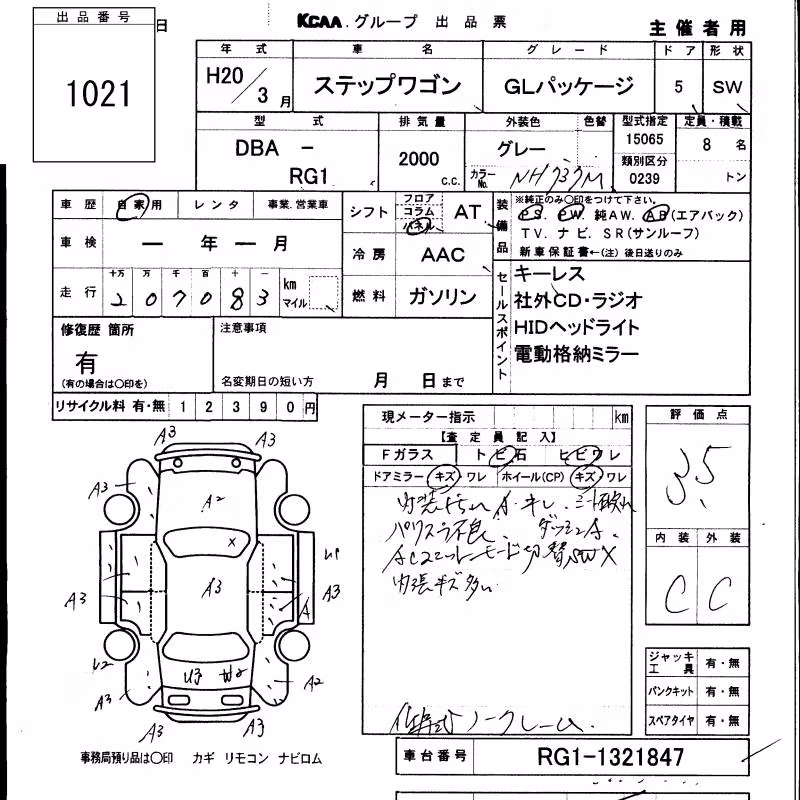 出品番号
日
1021
KCAA.グループ 出品票
主催者用
年式 車名 グレード ドア 形状
H20/3月 ステップワゴン GLパッケージ 5 SW
型式 排気量 外装色 色替 型式指定 定員・積載
DBA - RG1
2000 c.c.
グレー
カラーNo. NH737M
15065
類別区分
0239
8 名
トン
車歴 自家用 レンタ 事業.営業車
車検 ー 年 ー 月
走行 十万 万 千 百 十 一 km マイル
2 0 7 0 8 3
シフト フロア コラム パネル AT
冷房 AAC
燃料 ガソリン
装備品
※純正のみ〇印をつけて下さい。
PS. PW. 純AW. AB(エアバック)
TV. ナビ. SR(サンルーフ)
新車保証書←(注) 後日送りのみ
セールスポイント
キーレス
社外CD・ラジオ
HIDヘッドライト
電動格納ミラー
修復歴 箇所
有
(有の場合は〇印を)
注意事項
名変期日の短い方 月 日まで
リサイクル料 有・無 1 2 3 9 0 円
現メーター指示 km
【査定員記入】
Fガラス トビ石 ヒビワレ
ドアミラー キズ・ワレ ホイール(CP) キズ・ワレ
パワスラ不良.
ACユニットモード切替SW×
内張キズ多い
ノークレーム.
評価点
3.5
内装 外装
C C
ジャッキ工具 有・無
パンクキット 有・無
スペアタイヤ 有・無
A3 A3
A3 A2
X
A3 A3 A3
A
U2 U3 W2
A3 A2
A3 A3
事務局預り品は〇印 カギ リモコン ナビロム
車台番号 RG1-1321847